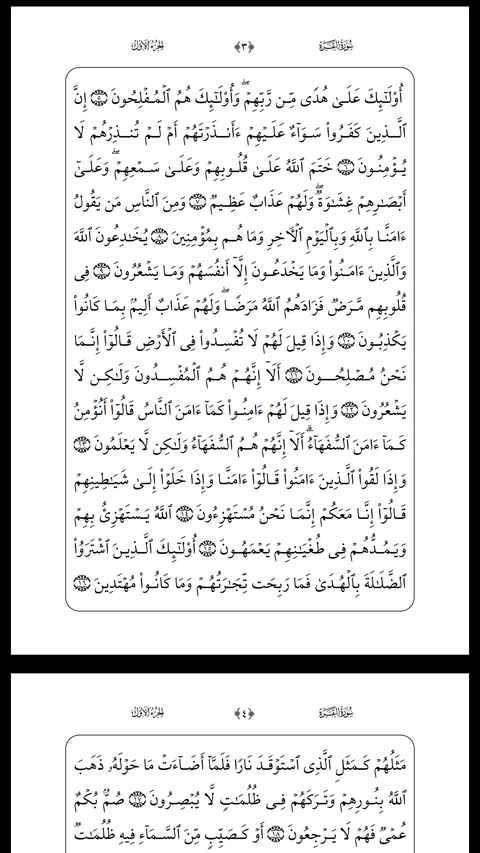 سُورَةُ البَقَرَةِ ﴿٣﴾ الجُزءُ الأَوَّلُ
أُوْلَٰٓئِكَ عَلَىٰ هُدٗى مِّن رَّبِّهِمۡۖ وَأُوْلَٰٓئِكَ هُمُ ٱلۡمُفۡلِحُونَ ۝٥ إِنَّ
ٱلَّذِينَ كَفَرُواْ سَوَآءٌ عَلَيۡهِمۡ ءَأَنذَرۡتَهُمۡ أَمۡ لَمۡ تُنذِرۡهُمۡ لَا
يُؤۡمِنُونَ ۝٦ خَتَمَ ٱللَّهُ عَلَىٰ قُلُوبِهِمۡ وَعَلَىٰ سَمۡعِهِمۡۖ وَعَلَىٰٓ
أَبۡصَٰرِهِمۡ غِشَٰوَةٞۖ وَلَهُمۡ عَذَابٌ عَظِيمٞ ۝٧ وَمِنَ ٱلنَّاسِ مَن يَقُولُ
ءَامَنَّا بِٱللَّهِ وَبِٱلۡيَوۡمِ ٱلۡأٓخِرِ وَمَا هُم بِمُؤۡمِنِينَ ۝٨ يُخَٰدِعُونَ ٱللَّهَ
وَٱلَّذِينَ ءَامَنُواْ وَمَا يَخۡدَعُونَ إِلَّآ أَنفُسَهُمۡ وَمَا يَشۡعُرُونَ ۝٩ فِي
قُلُوبِهِم مَّرَضٞ فَزَادَهُمُ ٱللَّهُ مَرَضٗاۖ وَلَهُمۡ عَذَابٌ أَلِيمُۢ بِمَا كَانُواْ
يَكۡذِبُونَ ۝١٠ وَإِذَا قِيلَ لَهُمۡ لَا تُفۡسِدُواْ فِي ٱلۡأَرۡضِ قَالُوٓاْ إِنَّمَا
نَحۡنُ مُصۡلِحُونَ ۝١١ أَلَآ إِنَّهُمۡ هُمُ ٱلۡمُفۡسِدُونَ وَلَٰكِن لَّا
يَشۡعُرُونَ ۝١٢ وَإِذَا قِيلَ لَهُمۡ ءَامِنُواْ كَمَآ ءَامَنَ ٱلنَّاسُ قَالُوٓاْ أَنُؤۡمِنُ
كَمَآ ءَامَنَ ٱلسُّفَهَآءُۗ أَلَآ إِنَّهُمۡ هُمُ ٱلسُّفَهَآءُ وَلَٰكِن لَّا يَعۡلَمُونَ ۝١٣
وَإِذَا لَقُواْ ٱلَّذِينَ ءَامَنُواْ قَالُوٓاْ ءَامَنَّا وَإِذَا خَلَوۡاْ إِلَىٰ شَيَٰطِينِهِمۡ
قَالُوٓاْ إِنَّا مَعَكُمۡ إِنَّمَا نَحۡنُ مُسۡتَهۡزِءُونَ ۝١٤ ٱللَّهُ يَسۡتَهۡزِئُ بِهِمۡ
وَيَمُدُّهُمۡ فِي طُغۡيَٰنِهِمۡ يَعۡمَهُونَ ۝١٥ أُوْلَٰٓئِكَ ٱلَّذِينَ ٱشۡتَرَوُاْ
ٱلضَّلَٰلَةَ بِٱلۡهُدَىٰ فَمَا رَبِحَت تِّجَٰرَتُهُمۡ وَمَا كَانُواْ مُهۡتَدِينَ ۝١٦
سُورَةُ البَقَرَةِ ﴿٤﴾ الجُزءُ الأَوَّلُ
مَثَلُهُمۡ كَمَثَلِ ٱلَّذِي ٱسۡتَوۡقَدَ نَارٗا فَلَمَّآ أَضَآءَتۡ مَا حَوۡلَهُۥ ذَهَبَ
ٱللَّهُ بِنُورِهِمۡ وَتَرَكَهُمۡ فِي ظُلُمَٰتٖ لَّا يُبۡصِرُونَ ۝١٧ صُمُّۢ بُكۡمٌ
عُمۡيٞ فَهُمۡ لَا يَرۡجِعُونَ ۝١٨ أَوۡ كَصَيِّبٖ مِّنَ ٱلسَّمَآءِ فِيهِ ظُلُمَٰتٞ